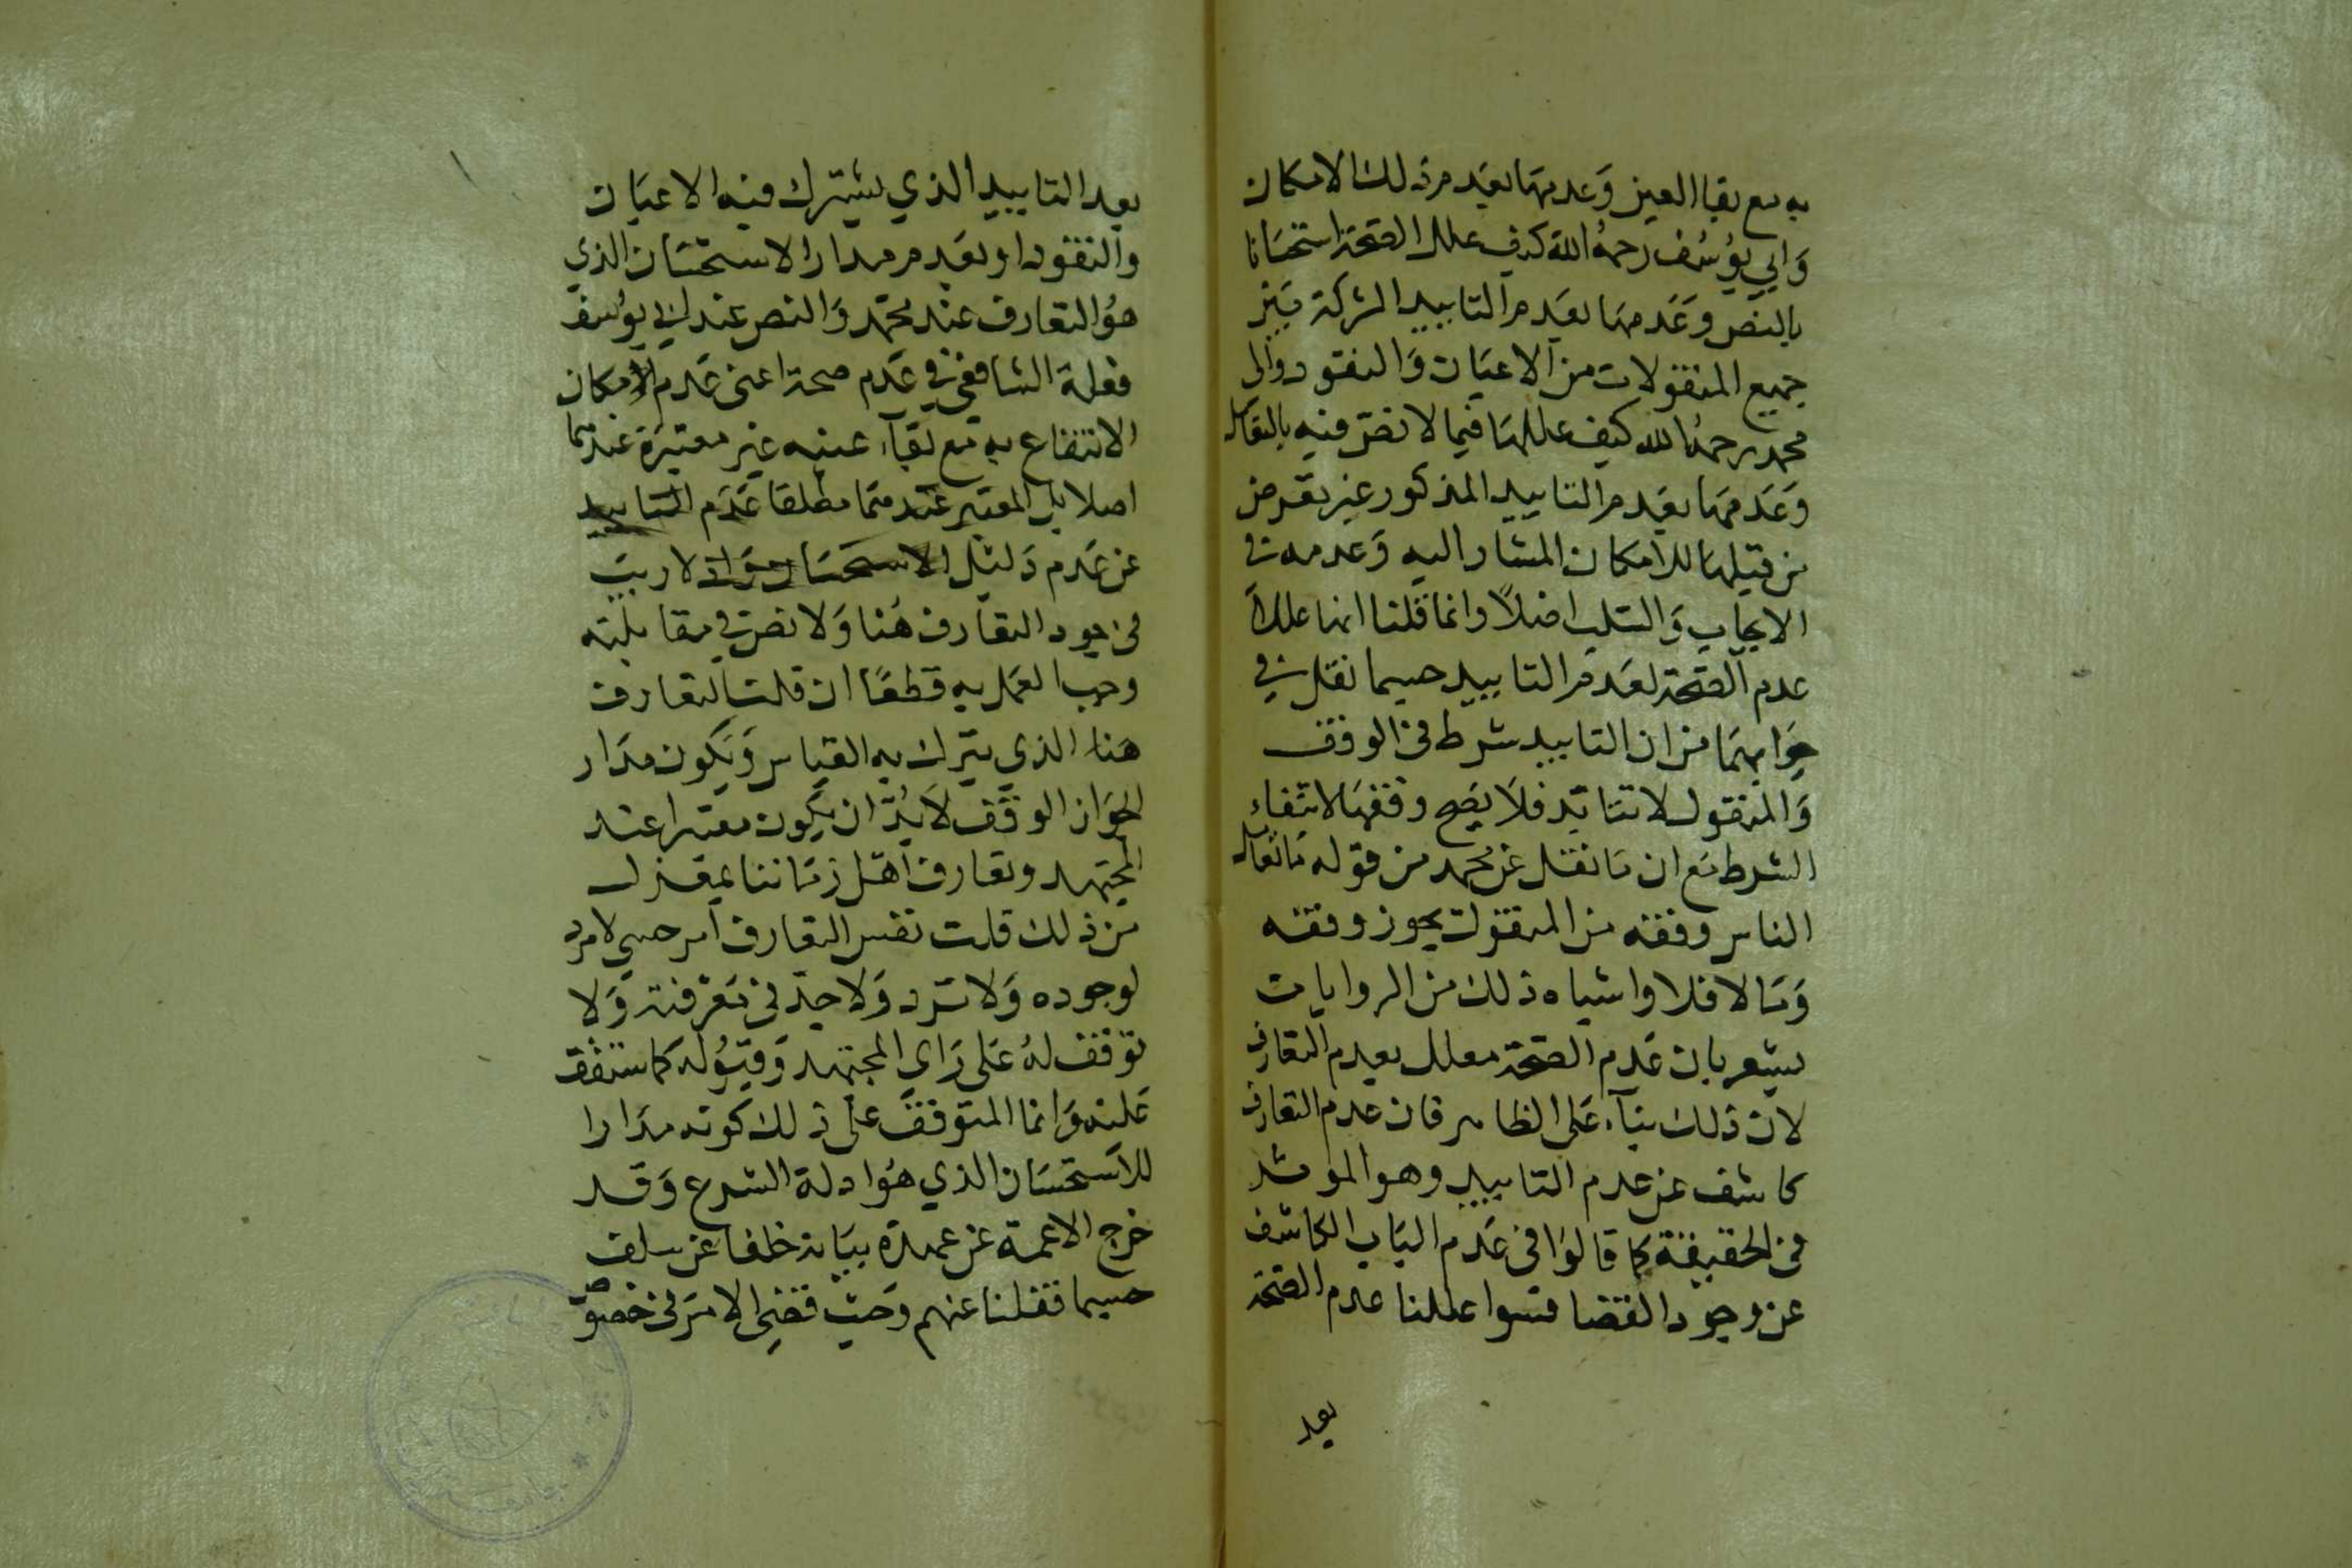 به مع بقا العين وَعدمهَا بعَدم ذلك الامكان
وَابي يوُسُف رحمهُ الله كيف علل الصّحة استحسَانا
بالنص وعَدمهَا بعَدم التابيد الشركة بَين
جميع المنقولات من الاعيَان وَالنقود والى
محمد رحمهُ الله كيف عللهَا فيما لا نصّ فيه بالتعامل
وَعَدمهَا بعَدم التابيد المذكور غير تعرض
من قبلهَا للامكان المشار اليه وَعدمه في
الايجاب وَالسّلب اصْلاً وانما قلنا انهَا عللا
عدم الصّحة لعَدم التابيد حسبما نقل في
جَوابهمَا من ان التابيد شرط في الوقف
وَالمنقول لا تتابّد فلاَ يصَح وقفهَا لانتفاء
الشرط مَع ان مَا نقل عن محمد من قوله مَا تعامل
الناس وقفه من المنقولت يجوز وقفه
وَمَا لا فلا واشباه ذلك من الروايات
يشعر بان عَدم الصّحة معلل بعدم التعارف
لان ذلك بناَء عَلى الظاهر فان عدم التعارف
كاشف عن عدم التابيد وهو الموثر
في الحقيقة كما قالوُا في عَدم البَاب الكاشف
عن وجود القضا فسوا عللنا عدم الصّحة
بعد
بعد التابيد الذي يشترك فيه الاعيَان
والنقود او بعَدم مدار الاستحسَان الذي
هوُ التعارف عند محمّد وَالنص عند ابي يوسُف
فعلة الشافعي في عَدم صحة اعنى عَدم الامكان
الانتفاع به مع بقَاء عينه غير معتبَرة عندهما
اصلا بل المعتبر عندهمَا مطلقا عَدَم التابيد
عن عَدم دَليل الاستحسَان وَاذ لا ريبَ
في وجود التعارف هُنا وَلا نصّ في مقابلته
وجب العمَل به قطعًا ان قلت التعارف
هَنا الذي يتَرك به القياس وَيَكون مدَار
الجوَاز الوقف لاَ بُدّ ان يكون معتبرا عند
المجتهد وتعارف اهَل زمَاننا بمعزل
من ذلك قلت نفس التعارف امر حسي لا مرد
لوجوده وَلا ترد وَلا حدّ في مَعرفته وَلا
توقف لهُ عَلى رَاي المجتهد وَقبُوله كما ستقف
عَليه وَانما المتوقف عَلى ذلك كونه مدَارا
للاستحسَان الذي هُوَ ادلة الشرع وَقد
خرج الاعمة عن عهدة بيَانه خلفا عن سلف
حسبما نقلنا عنهم وَحيث قضي الامرَ في خصوص